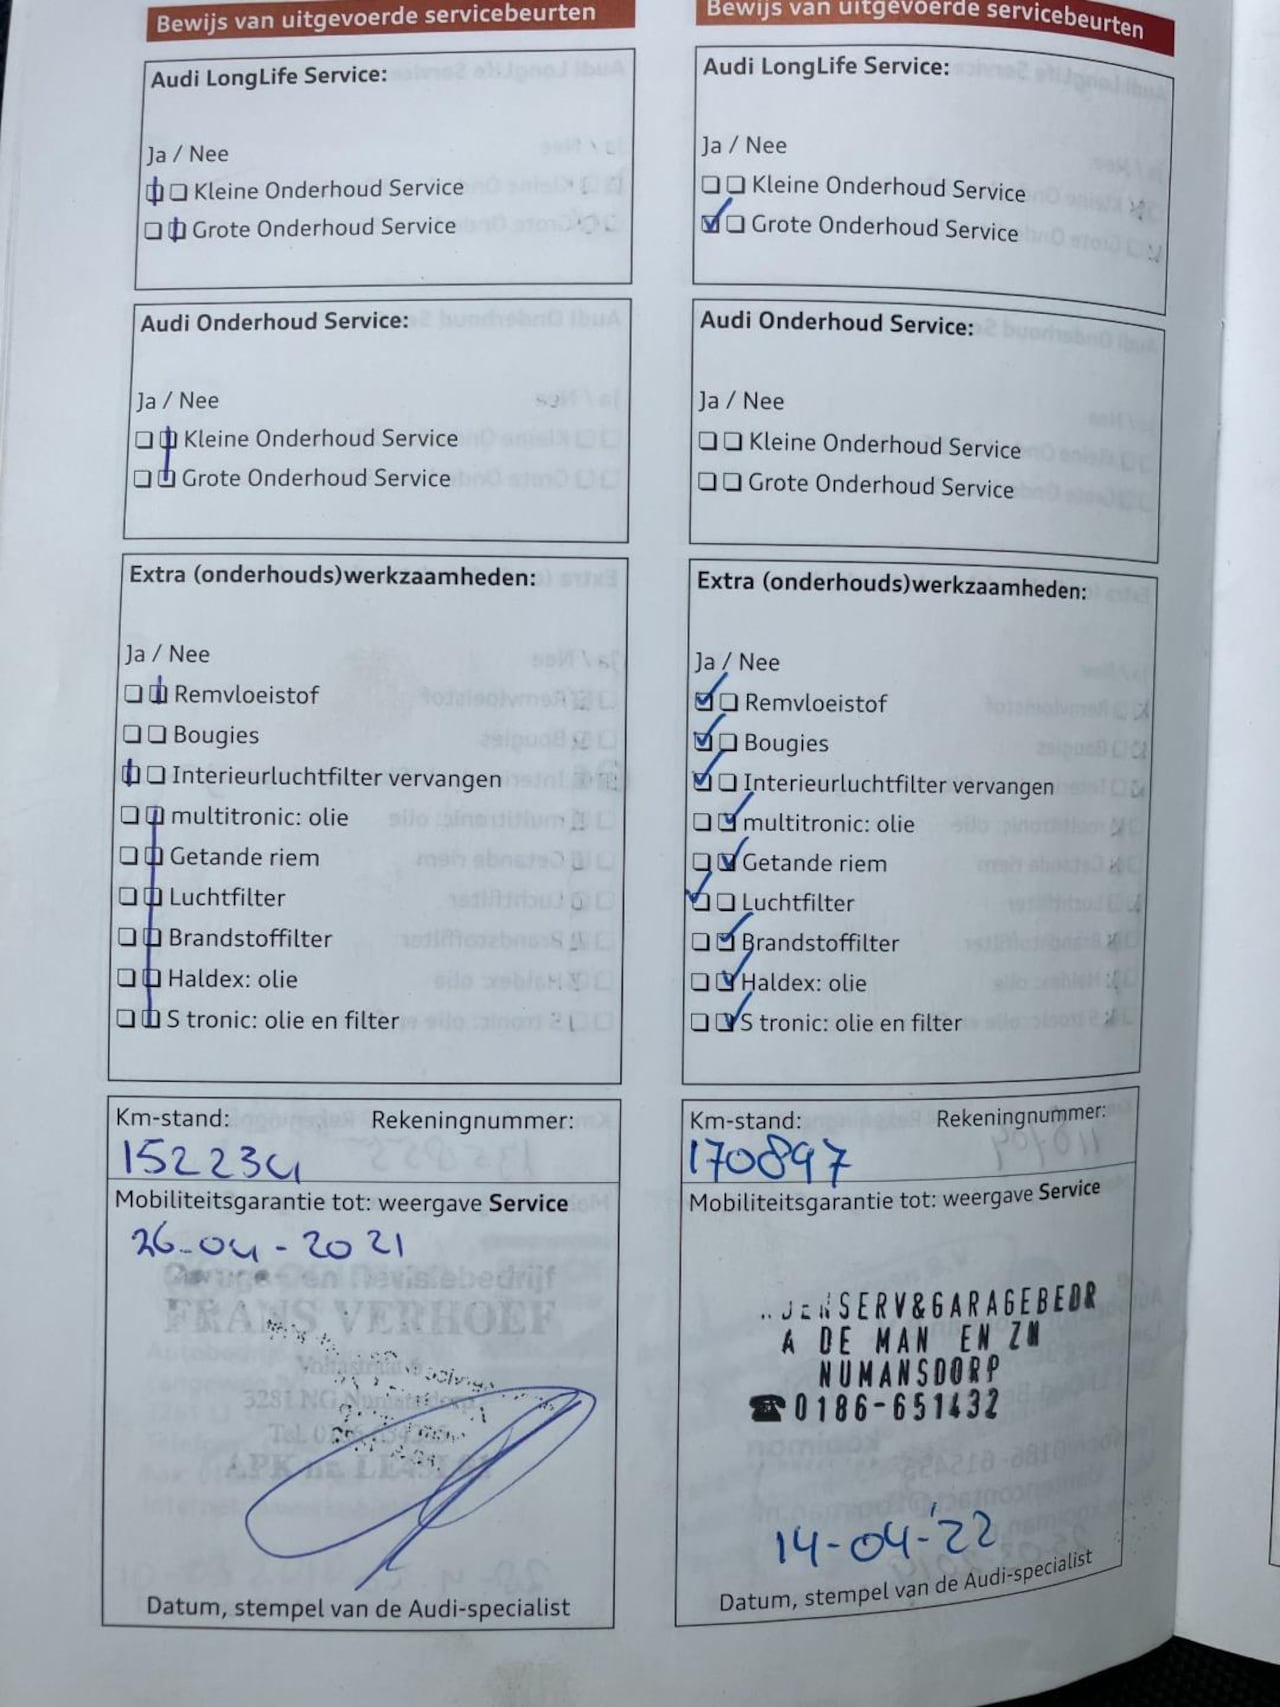 Bewijs van uitgevoerde servicebeurten
Audi LongLife Service:
Ja / Nee
Kleine Onderhoud Service
Grote Onderhoud Service
Audi Onderhoud Service:
Ja / Nee
Kleine Onderhoud Service
Grote Onderhoud Service
Extra (onderhouds)werkzaamheden:
Ja / Nee
Remvloeistof
Bougies
Interieurluchtfilter vervangen
multitronic: olie
Getande riem
Luchtfilter
Brandstoffilter
Haldex: olie
S tronic: olie en filter
Km-stand: Rekeningnummer:
152234
Mobiliteitsgarantie tot: weergave Service
26-04-2021
Garage- en Revisiebedrijf
FRANS VERHOEF
3281 NG Numansdorp
Datum, stempel van de Audi-specialist
Bewijs van uitgevoerde servicebeurten
Audi LongLife Service:
Ja / Nee
Kleine Onderhoud Service
Grote Onderhoud Service
Audi Onderhoud Service:
Ja / Nee
Kleine Onderhoud Service
Grote Onderhoud Service
Extra (onderhouds)werkzaamheden:
Ja / Nee
Remvloeistof
Bougies
Interieurluchtfilter vervangen
multitronic: olie
Getande riem
Luchtfilter
Brandstoffilter
Haldex: olie
S tronic: olie en filter
Km-stand: Rekeningnummer:
170897
Mobiliteitsgarantie tot: weergave Service
SERV&GARAGEBEDR
A DE MAN EN ZN
NUMANSDORP
☎0186-651432
14-04-'22
Datum, stempel van de Audi-specialist